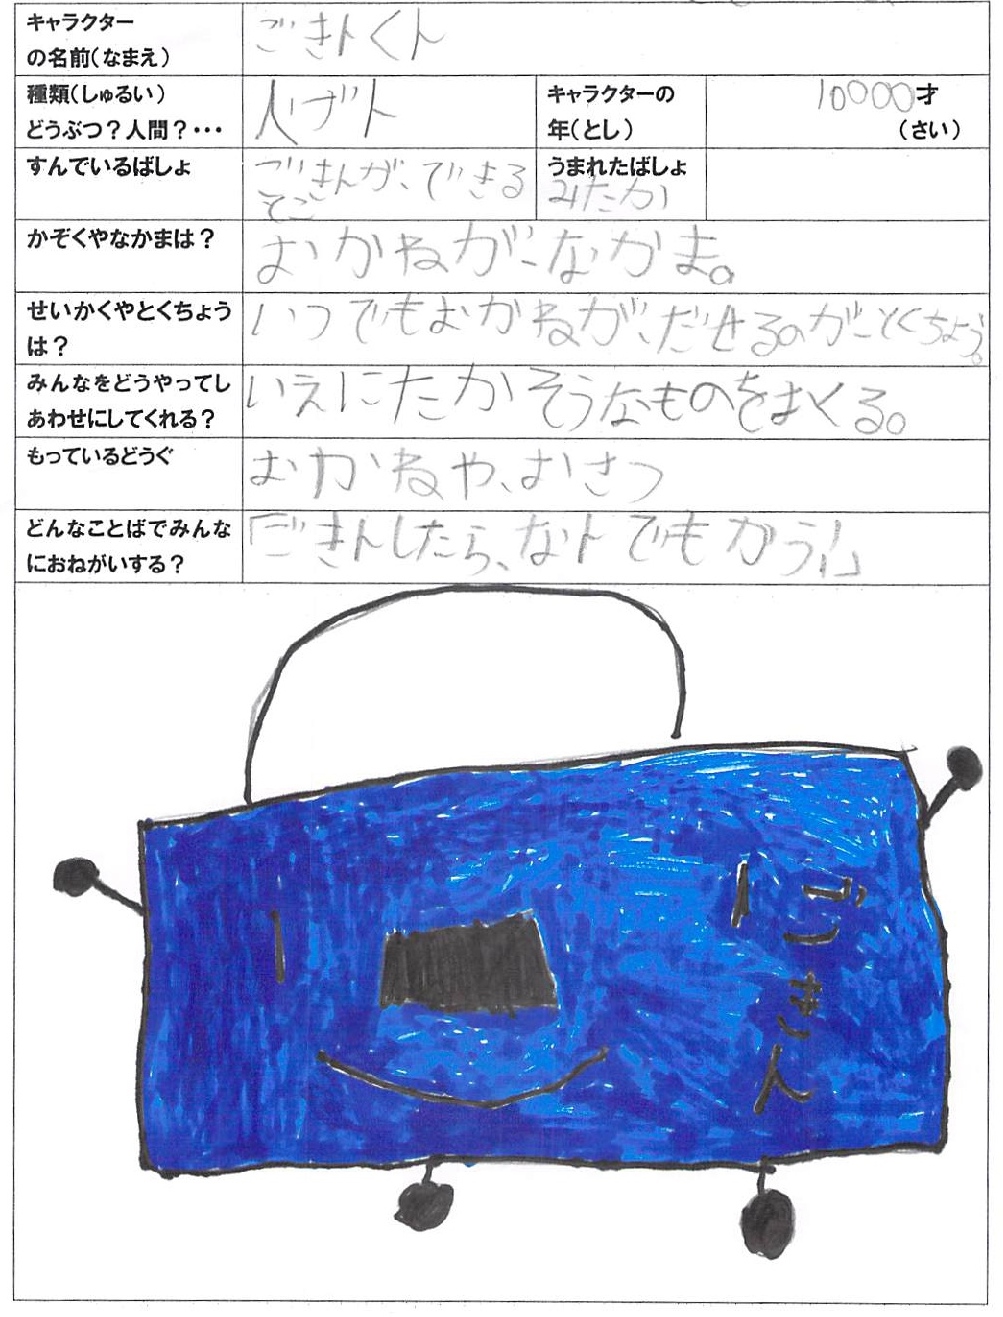 キャラクター
の名前(なまえ)
ごきんくん
種類(しゅるい)
どうぶつ?人間?・・・
人げん
キャラクターの
年(とし)
10000才
(さい)
すんでいるばしょ
ごきんが、できる
とこ
うまれたばしょ
みたか
かぞくやなかまは?
おかねがなかま。
せいかくやとくちょう
は?
いつでもおかねがだせるのがとくちょう。
みんなをどうやってし
あわせにしてくれる?
いえにたかそうなものをおくる。
もっているどうぐ
おかねや、おさつ
どんなことばでみんな
におねがいする?
「ごきんしたら、なんでもかう!」
ごきん